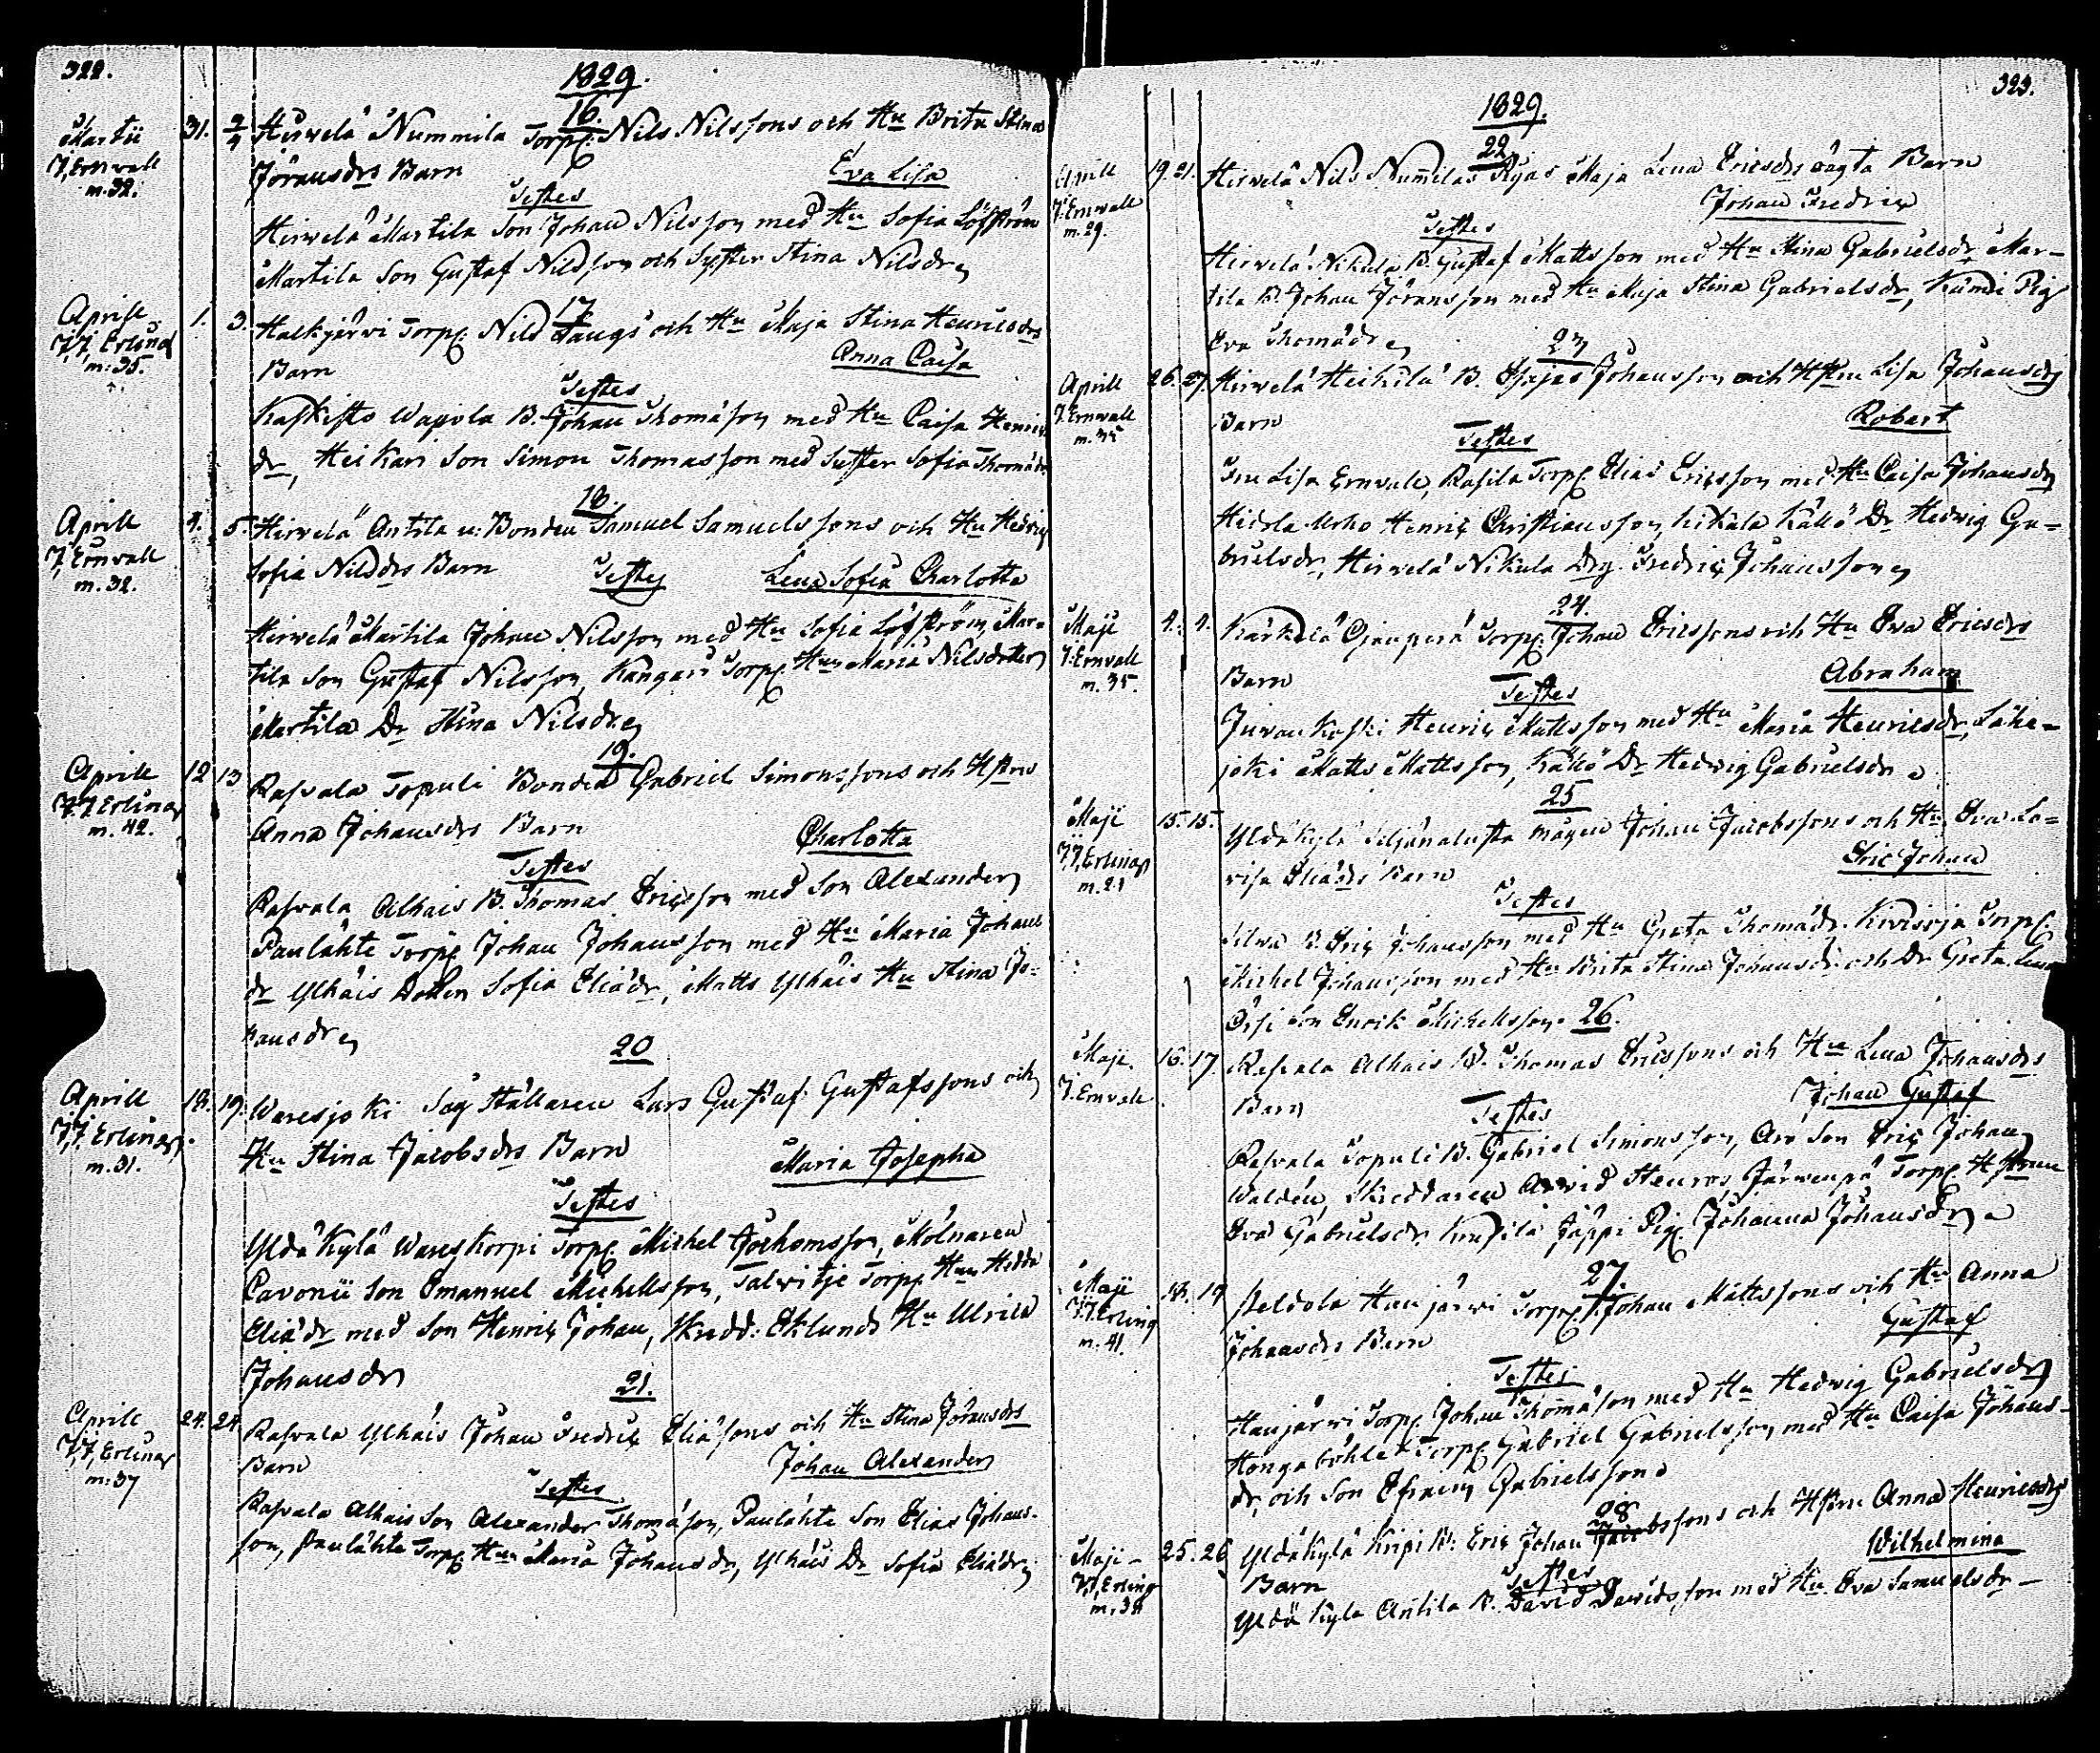 322.
1829.
16.
Martii 31. 2/4 Hirvelä Nummila Torp: Nils Nilssons och Hu Brita Stina
J, Ernvall
m. 32.
Jöransdrs Barn Eva Lisa
Testes
Hirvelä Martila Son Johan Nilsson med Hu Sofia Löfström
Martila Son Gustaf Nilsson och Syster Stina Nilsdr
17
Aprill 1. 3. Halkjärvi Torp: Nils Långs och Hu Maja Stina Henricsdrs
J, J, Erling
m. 35.
Barn Anna Caisa
Testes
Kaskisto B. Johan Thomasson med Hu Caisa Henrics
dr, Heikari Son Simon Thomasson med Syster Sofia Thomasdr
18.
Aprill 4. 5. Hirvelä Antila u: Bonden Samuel Samuelssons och Hu Hedvig
J, Ernvall
m. 32.
Sofia Nilsdrs Barn Testes Lena Sofia Charlotta
Hirvelä Martila Johan Nilsson med Hu Sofia Löfström, Mar=
tila Son Gustaf Nilsson, Kangari Torp: Hun Maria Nilsdotter
Martila Dr Stina Nilsdr
19.
Aprill 12 13 Rasvala Topuli Bonden Gabriel Simonssons och Hstrus
J. J. Erling
m. 42.
Anna Johansdrs Barn Charlotta
Testes
Rasvala Alhais B. Thomas Ericsson med Son Alexander
Paulähte Torp: Johan Johansson med Hu Maria Johans
dr Ylhäis Dotten Sofia Eliädr, Matts Ylhäis Hu Stina Jo=
hansdr
20
Aprill 18. 19. Waresjoki Såg Ställaren Lars Gustaf Gustafssons och
J, J. Erling
m. 31.
Hu Stina Jacobsdrs Barn Maria Josepha
Testes
Yldäkylä Wareskorpi Torp: Michel Jochomsson, Mölnaren
Pavonii Son Emanuel Michelsson, Talvitje Torp: Hun Hedda
Eliädr med Son Henric Johan, Skredd: Eklunds Hu Ulrica
Johansdr
21.
Aprill 24. 24 Rasvala Ylhäis Johan Fredric Eliäsons och Hu Stina Jöransdrs
J, J, Erling
m: 37
Barn Johan Alexander
Testes
Rasvala Alhais Son Alexander Thomasson, Paulähte Son Elias Johans-
son, Paulähte Torp: Hun Maria Johansdr, Ylhäis Dr Sofia Eliädr
323.
1829.
22
Aprill 19. 21. Hirvelä Nils Numilas Pigas Maja Lena Ericsdrs oägta Barn
J. Ernvall
m. 29.
Johan Fredric
Testes
Hirvelä Nikula B. Gustaf Mattsson med Hu Stina Gabrielsdr Mar-
tila B. Johan Jöransson med Hu Maja Stina Gabrielsdr, Pig
Eva Thomädr
23
Aprill 26. 27. Hirvelä Heikilä B. Esajas Johansson och Hstru Lisa Johansdrs
J. Ernvall
m. 35
Barn Robart
Testes
Fru Lisa Ernvall, Rasila Torp: Elias Ericsson med Hu Caisa Johansdr
Henric Christiansson, Dr Hedvig Ga=
brielsdr, Hirvelä Nikula Drg. Fredric Johansson
24.
Maji 4. 4. Kärkelä Torp: Johan Ericssons och Hu Eva Ericsdrs
J. Ernvall
m. 35.
Barn Abraham
Testes
Juvankoski Henric Mattsson med Hu Maria Henricsdr, Lähe=
joki Matts Mattsson, Dr Hedvig Gabrielsdr
25
Maji 15. 15. Yldäkylä Siljänalusta mågen Johan Jacobssons och Hu Eva Lo=
J, J, Erling
m. 21
visa Eliädrs Barn Eric Johan
Testes
B. Eric Johansson med Hu Greta Thomädr. Torp:
Michel Johansson med Hu Brita Stina Johansdr och Dr Greta Lena
Son Enrik Michelsson. 26.
Maji. 16. 17 Rasvala Alhais B. Thomas Ericssons och Hu Lena Johansdrs
J. Ernvall
Barn Johan Gustaf
Testes
Rasvala Topuli B. Gabriel Simonsson, Son Eric Johan
Waldén, Skreddaren Arvid Järvenpä Torp: Hstrun
Eva Gabrielsdr Jäppi Pig. Johanna Johansdr
27.
Maji 18. 19 Peldola Haujärvi Torp: Johan Mattssons och Hu Anna
J. J. Erling
m. 41.
Johansdrs Barn Gustaf
Testes
Haujärvi Torp: Johan Thomasson med Hu Hedvig Gabrielsdr
Hongaböhle Torp: Gabriel Gabrielsson med Hu Caisa Johans-
dr, och Son Efraim Gabrielsson
28
Maji - 25. 26 Yldäkylä Kipi B: Eric Johan Jacobssons och Hstru Anna Henricsdrs
J, J, Erling
Barn Wilhelmina
Testes
Yldäkylä Antila B. David Davidsson med Hu Eva Samuelsdr -